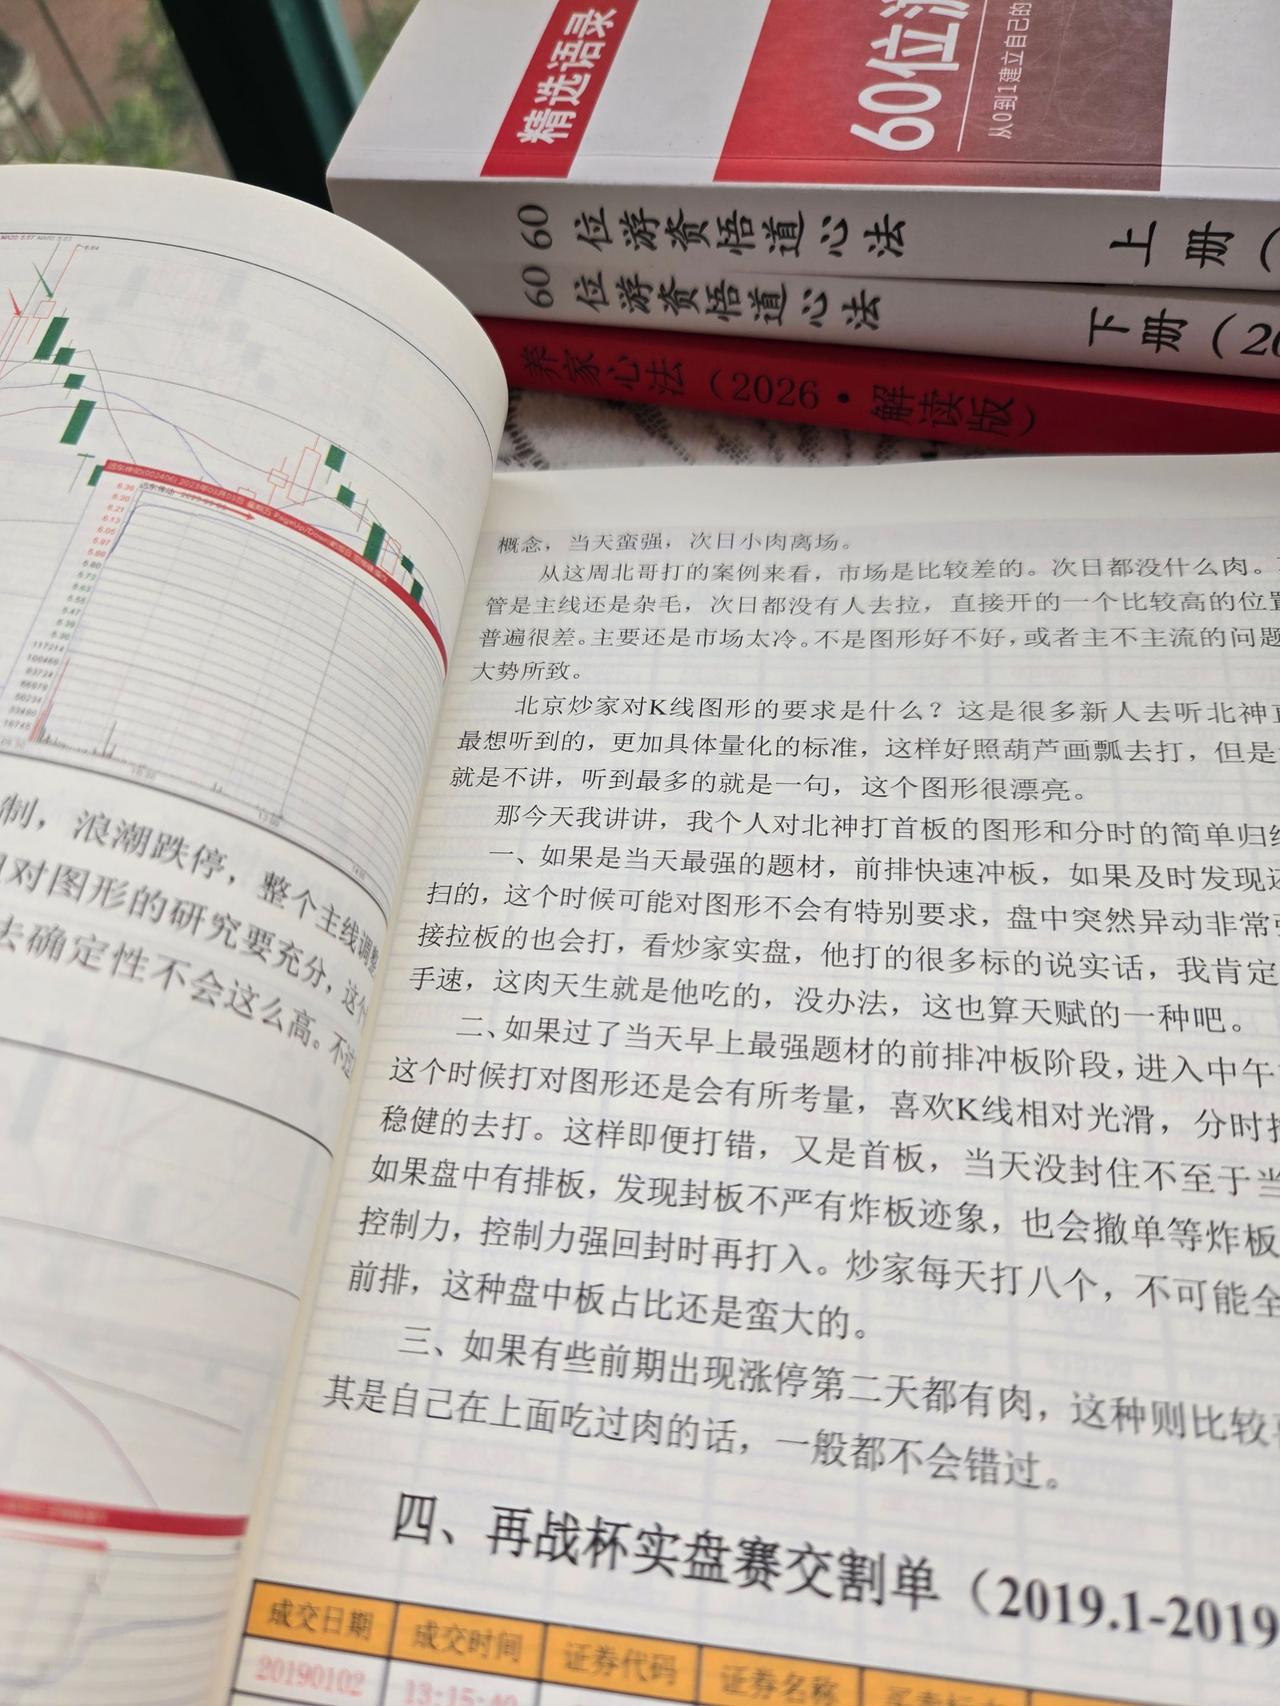 精选语录
60位游
从0到1建立自己的
60位游资悟道心法 上册（
60位游资悟道心法 下册（20
养家心法（2026·解读版）
远东传动(002406) 2023年03月03日 星期五 PageUp/Down
远东传动
6.36
6.30
6.21
6.13
6.05
5.97
5.88
5.80
5.72
5.63
5.55
5.47
5.39
5.30
117214
100469
83724
66979
50234
33490
16745
制，浪潮跌停，整个主线调整
对图形的研究要充分，这个
去确定性不会这么高。不过
概念，当天蛮强，次日小肉离场。
从这周北哥打的案例来看，市场是比较差的。次日都没什么肉。
管是主线还是杂毛，次日都没有人去拉，直接开的一个比较高的位置
普遍很差。主要还是市场太冷。不是图形好不好，或者主不主流的问题
大势所致。
北京炒家对K线图形的要求是什么？这是很多新人去听北神直
最想听到的，更加具体量化的标准，这样好照葫芦画瓢去打，但是
就是不讲，听到最多的就是一句，这个图形很漂亮。
那今天我讲讲，我个人对北神打首板的图形和分时的简单归结
一、如果是当天最强的题材，前排快速冲板，如果及时发现还
扫的，这个时候可能对图形不会有特别要求，盘中突然异动非常强
接拉板的也会打，看炒家实盘，他打的很多标的说实话，我肯定
手速，这肉天生就是他吃的，没办法，这也算天赋的一种吧。
二、如果过了当天早上最强题材的前排冲板阶段，进入中午
这个时候打对图形还是会有所考量，喜欢K线相对光滑，分时拉
稳健的去打。这样即便打错，又是首板，当天没封住不至于当
如果盘中有排板，发现封板不严有炸板迹象，也会撤单等炸板
控制力，控制力强回封时再打入。炒家每天打八个，不可能全
前排，这种盘中板占比还是蛮大的。
三、如果有些前期出现涨停第二天都有肉，这种则比较喜
其是自己在上面吃过肉的话，一般都不会错过。
四、再战杯实盘赛交割单（2019.1-2019
成交日期 成交时间 证券代码 证券名称 买卖标志
20190102 13:15:40